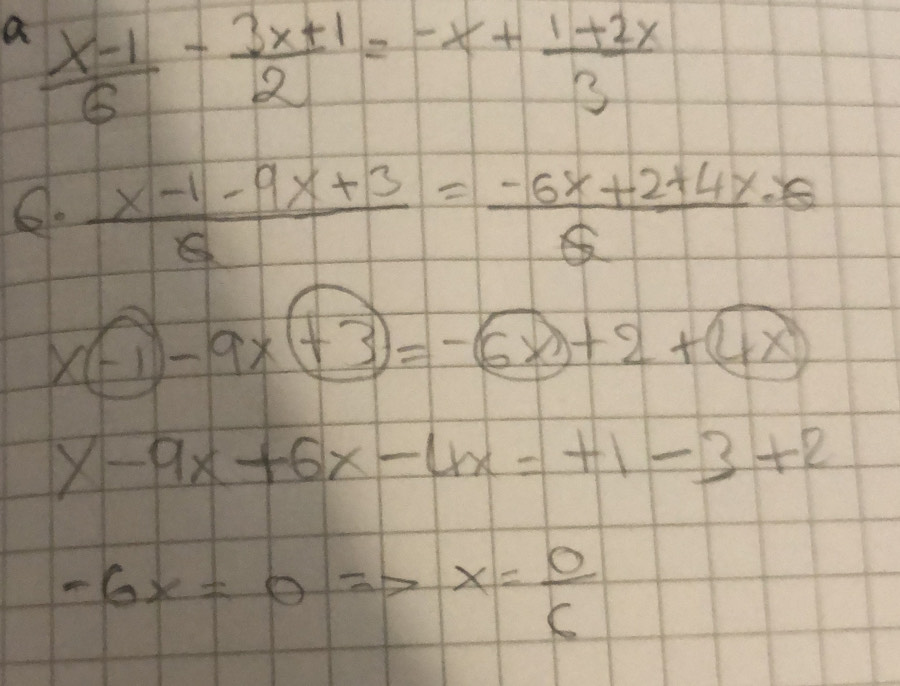 a x-1/6 - 3x+1/2 = -x + 1+2x/3
6. x-1-9x+3/6 = -6x+2+4x/6 .6
x-1-9x+3=-6x+2+4x
x-9x+6x-4x=+1-3+2
-6x=0=>x=0/6